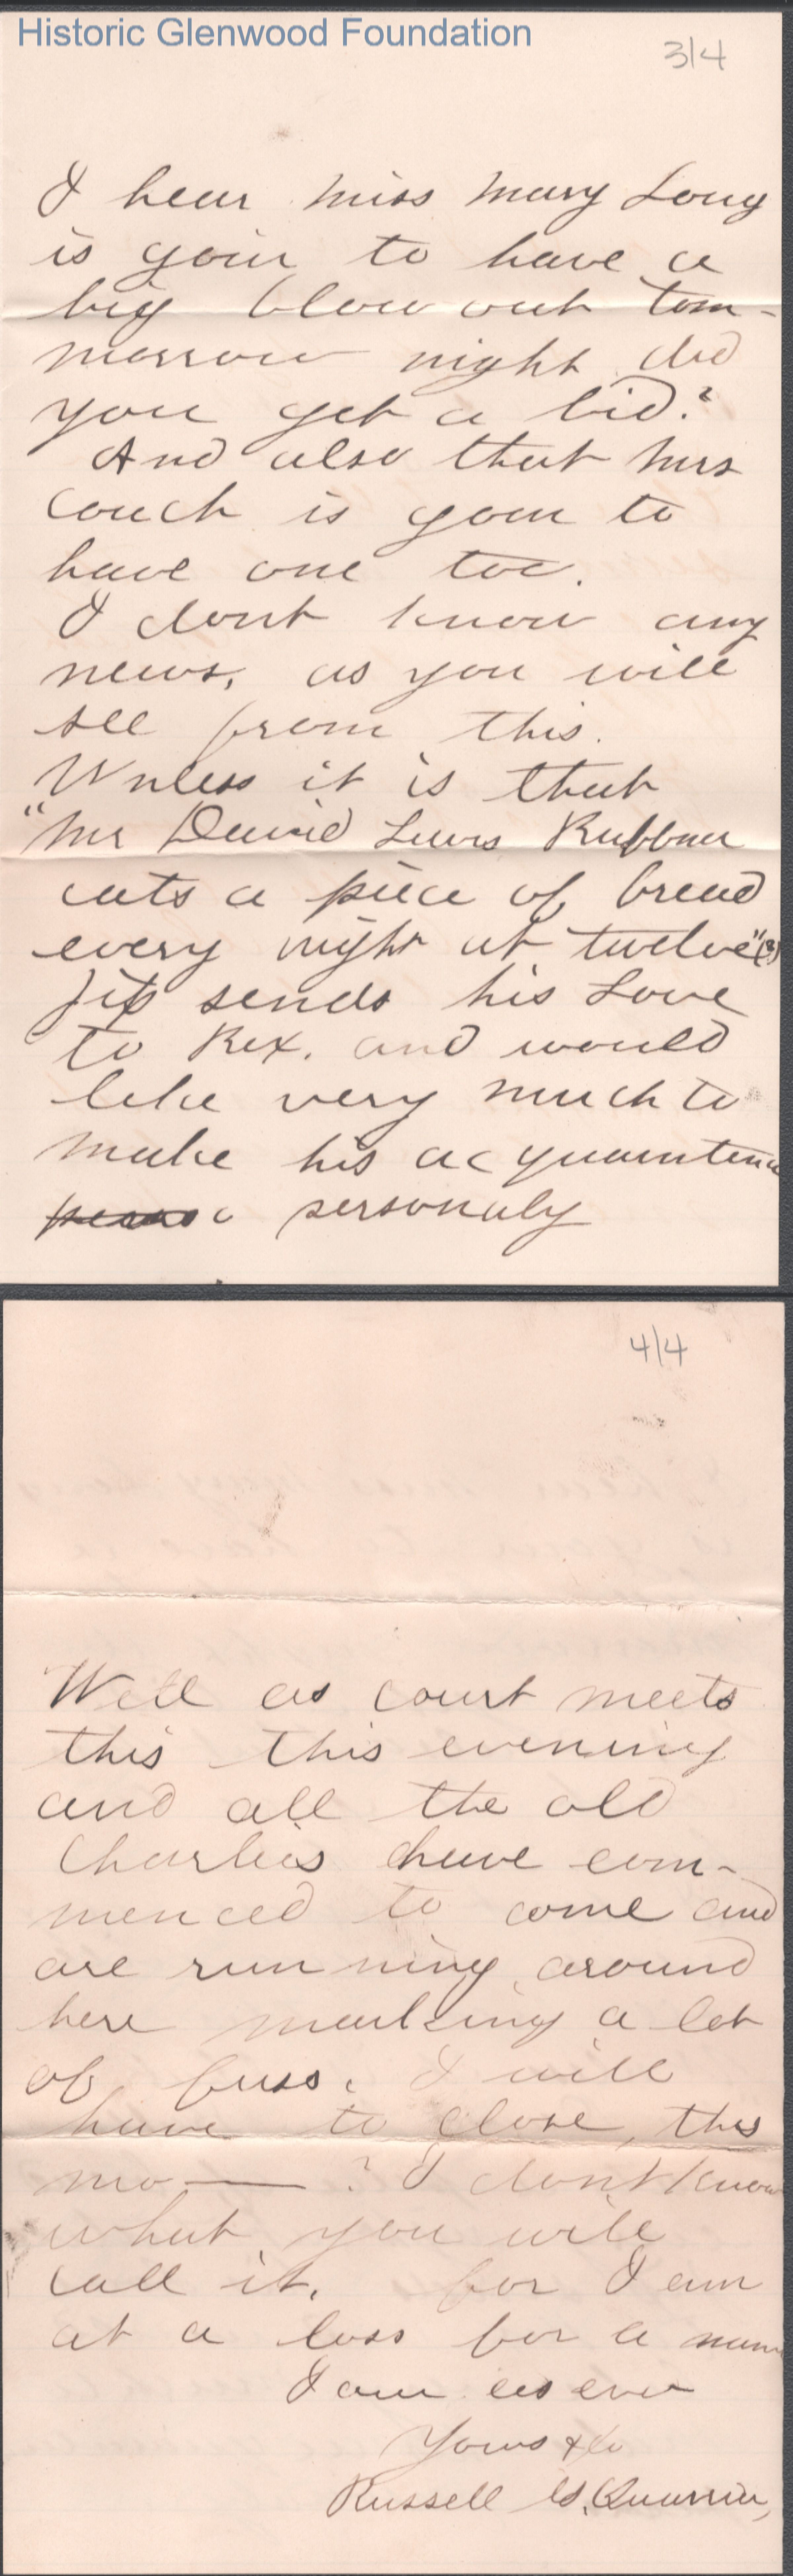 Historic Glenwood Foundation
3/4
I hear miss Mary Long
is goin to have a
big blow out tom-
morrow night did
you get a bid?
And also that Mrs
Couch is goin to
have one too.
I dont know any
news, as you will
see from this.
Unless it is that
"Mr David Lewis Ruffner
eats a piece of bread
every night at twelve"(?)
Jip sends his Love
to Rex. and would
like very much to
make his acquaintence
personaly
4/4
Well as court meets
this this evening
and all the old
Charlies have com-
menced to come and
are running around
here making a lot
of fuss. I will
have to close, this
mo——? I dont know
what you will
call it. for I am
at a loss for a name
I am as ever
Yours &c
Russell G. Quarrier,